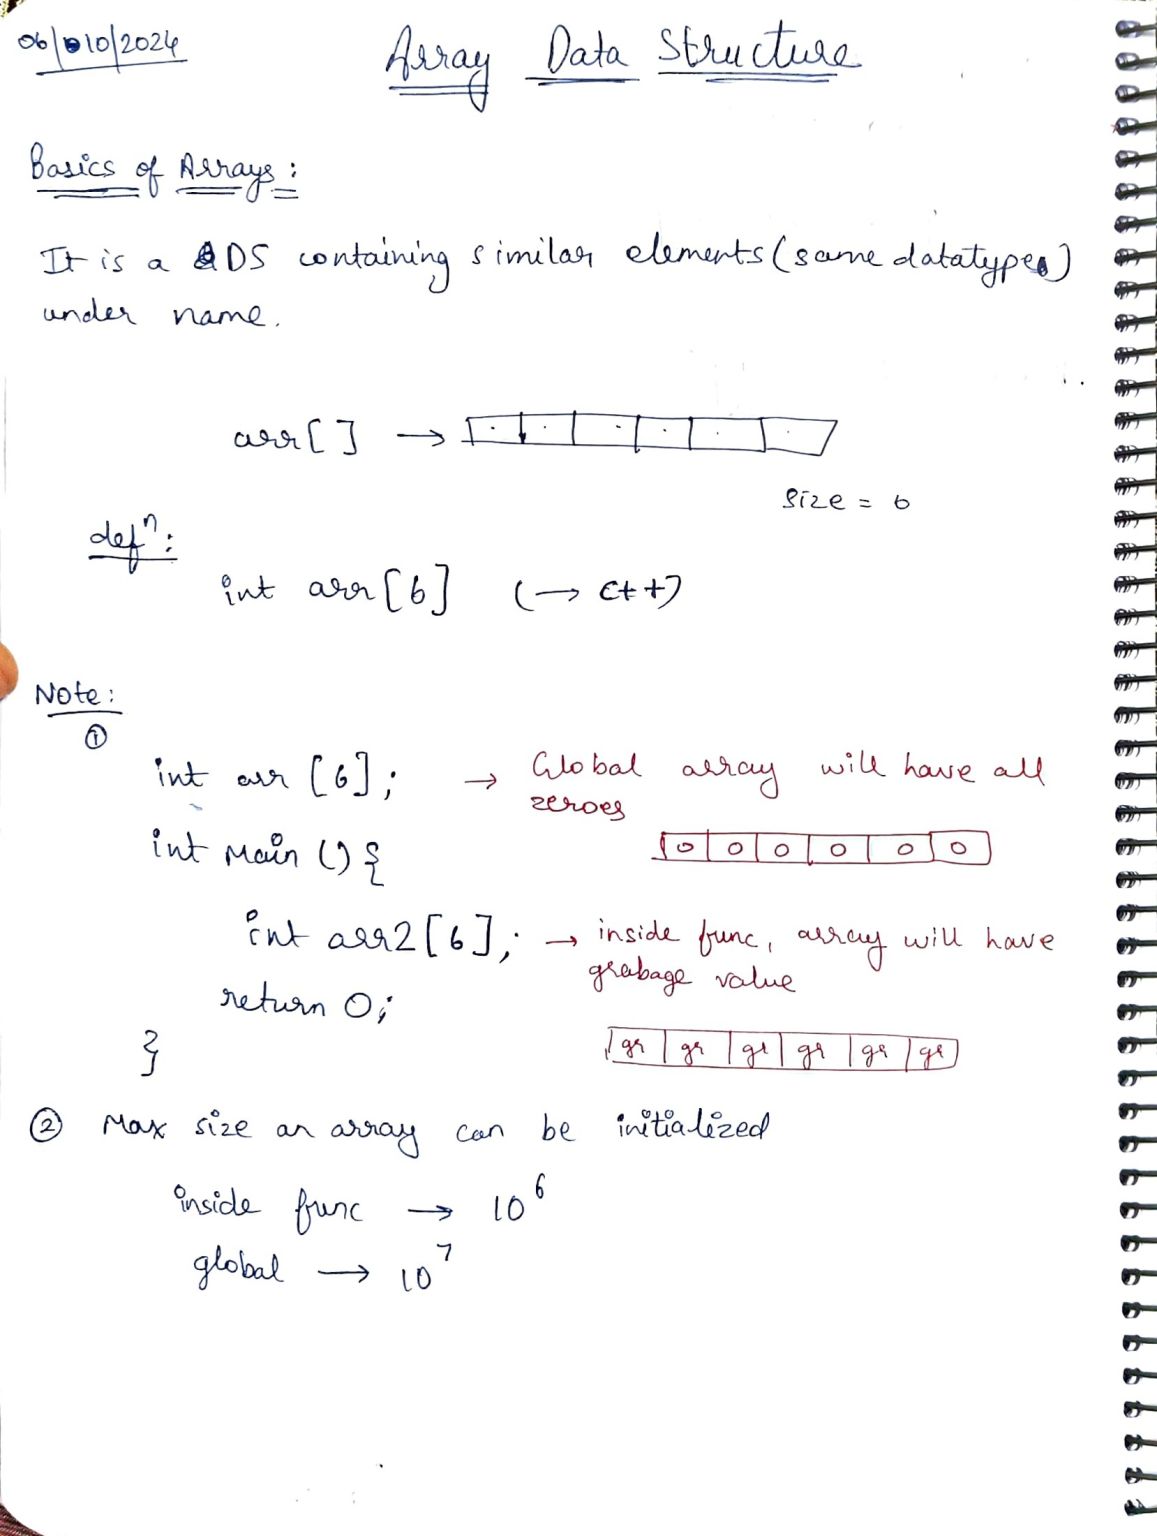 06/10/2024
Array Data Structure
Basics of Arrays:
It is a DS containing similar elements (same datatype)
under name.
arr[ ] →
Size = 6
defⁿ:
int arr[6] (→ C++)
Note:
①
int arr [6]; → Global array will have all
zeroes
int main () {
0 0 0 0 0 0
int arr2[6]; → inside func, array will have
grabage value
return 0;
}
gr gr gr gr gr gr
② Max size an array can be initialized
inside func → 10⁶
global → 10⁷